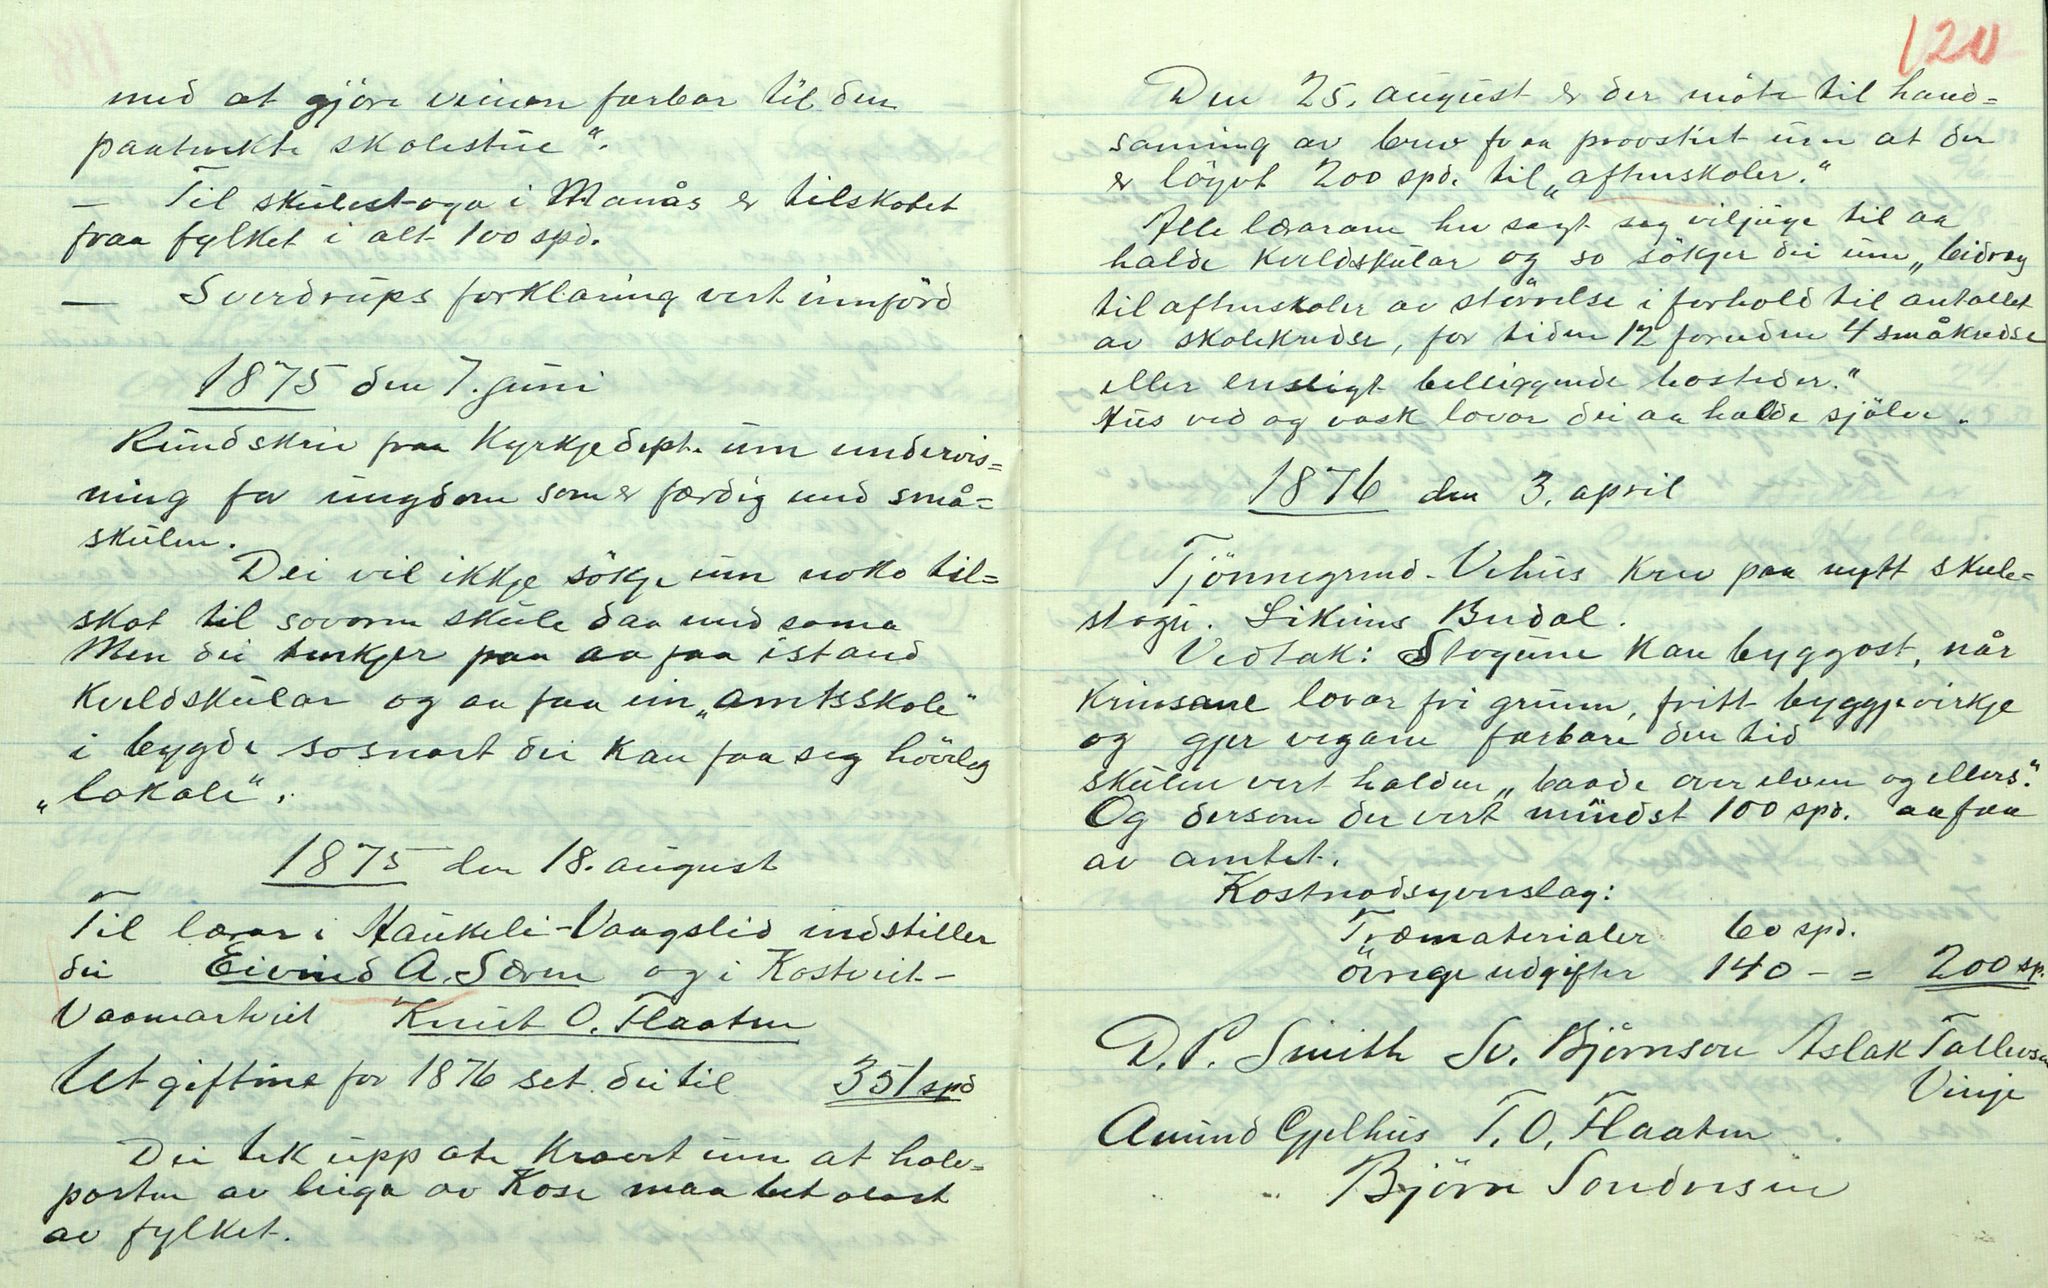 med at gjöre veien farbar til den
paatenkte skolestue".
— Til skulestoga i Manås er tilskotet
fraa fylket i alt 100 spd.
— Sverdrups forklaring vert innförd
1875 den 7. juni
Rundskriv fraa Kyrkjedept. um undervis=
ning for ungdom som er færdig med små=
skulen.
Dei vil ikkje sökje um noko til=
skot til sovoren skule daa med soma
Men dei tenkjer paa aa faa istand
kveldskular og aa faa ein „amtsskole"
i bygde so snart dei kan faa seg höveleg
„lokale".
1875 den 18. august
Til lærar i Haukeli-Vaagslid indstiller
dei Eivind A. Særen og i Kostveit-
Vaamartveit Knut O. Flaaten
Utgiftine for 1876 set dei til 351 spd
Dei tek upp ate kravet um at halv=
parten av leiga av Kose maa betalast
av fylket.
120
Den 25. august er der möte til hand=
saming av brev fraa provstiet um at der
er löyvt 200 spd. til „aftenskoler."
Alle lærarane hev sagt seg viljuge til aa
halde kveldskular og so sökjer dei um „bidrag
til aftenskoler av störrelse i forhold til antallet
av skolekredse, for tiden 12 foruden 4 småkredse
eller ensligt beliggende bosteder."
Hus ved og vask lovar dei aa halde sjölve.
1876 den 3. april
Tjönnegrend-Vehus krev paa nytt skule=
stogu. Likeins Budal.
Vedtak: Stogune kan byggast, når
krinsane lovar fri grunn, fritt byggjevirkje
og gjer vegane farbare den tid
skulen vert halden „baade over elven og ellers".
Og dersom der vert mindst 100 spd. aa faa
av amtet.
Kostnadsyverslag:
Træmaterialer 60 spd.
övrige udgifter 140 — = 200 sp.
D. P. Smith Sv. Björnson Aslak Tallevsen
Vinje
Amund Gjelhus T. O. Flaaten
Björn Sondresen